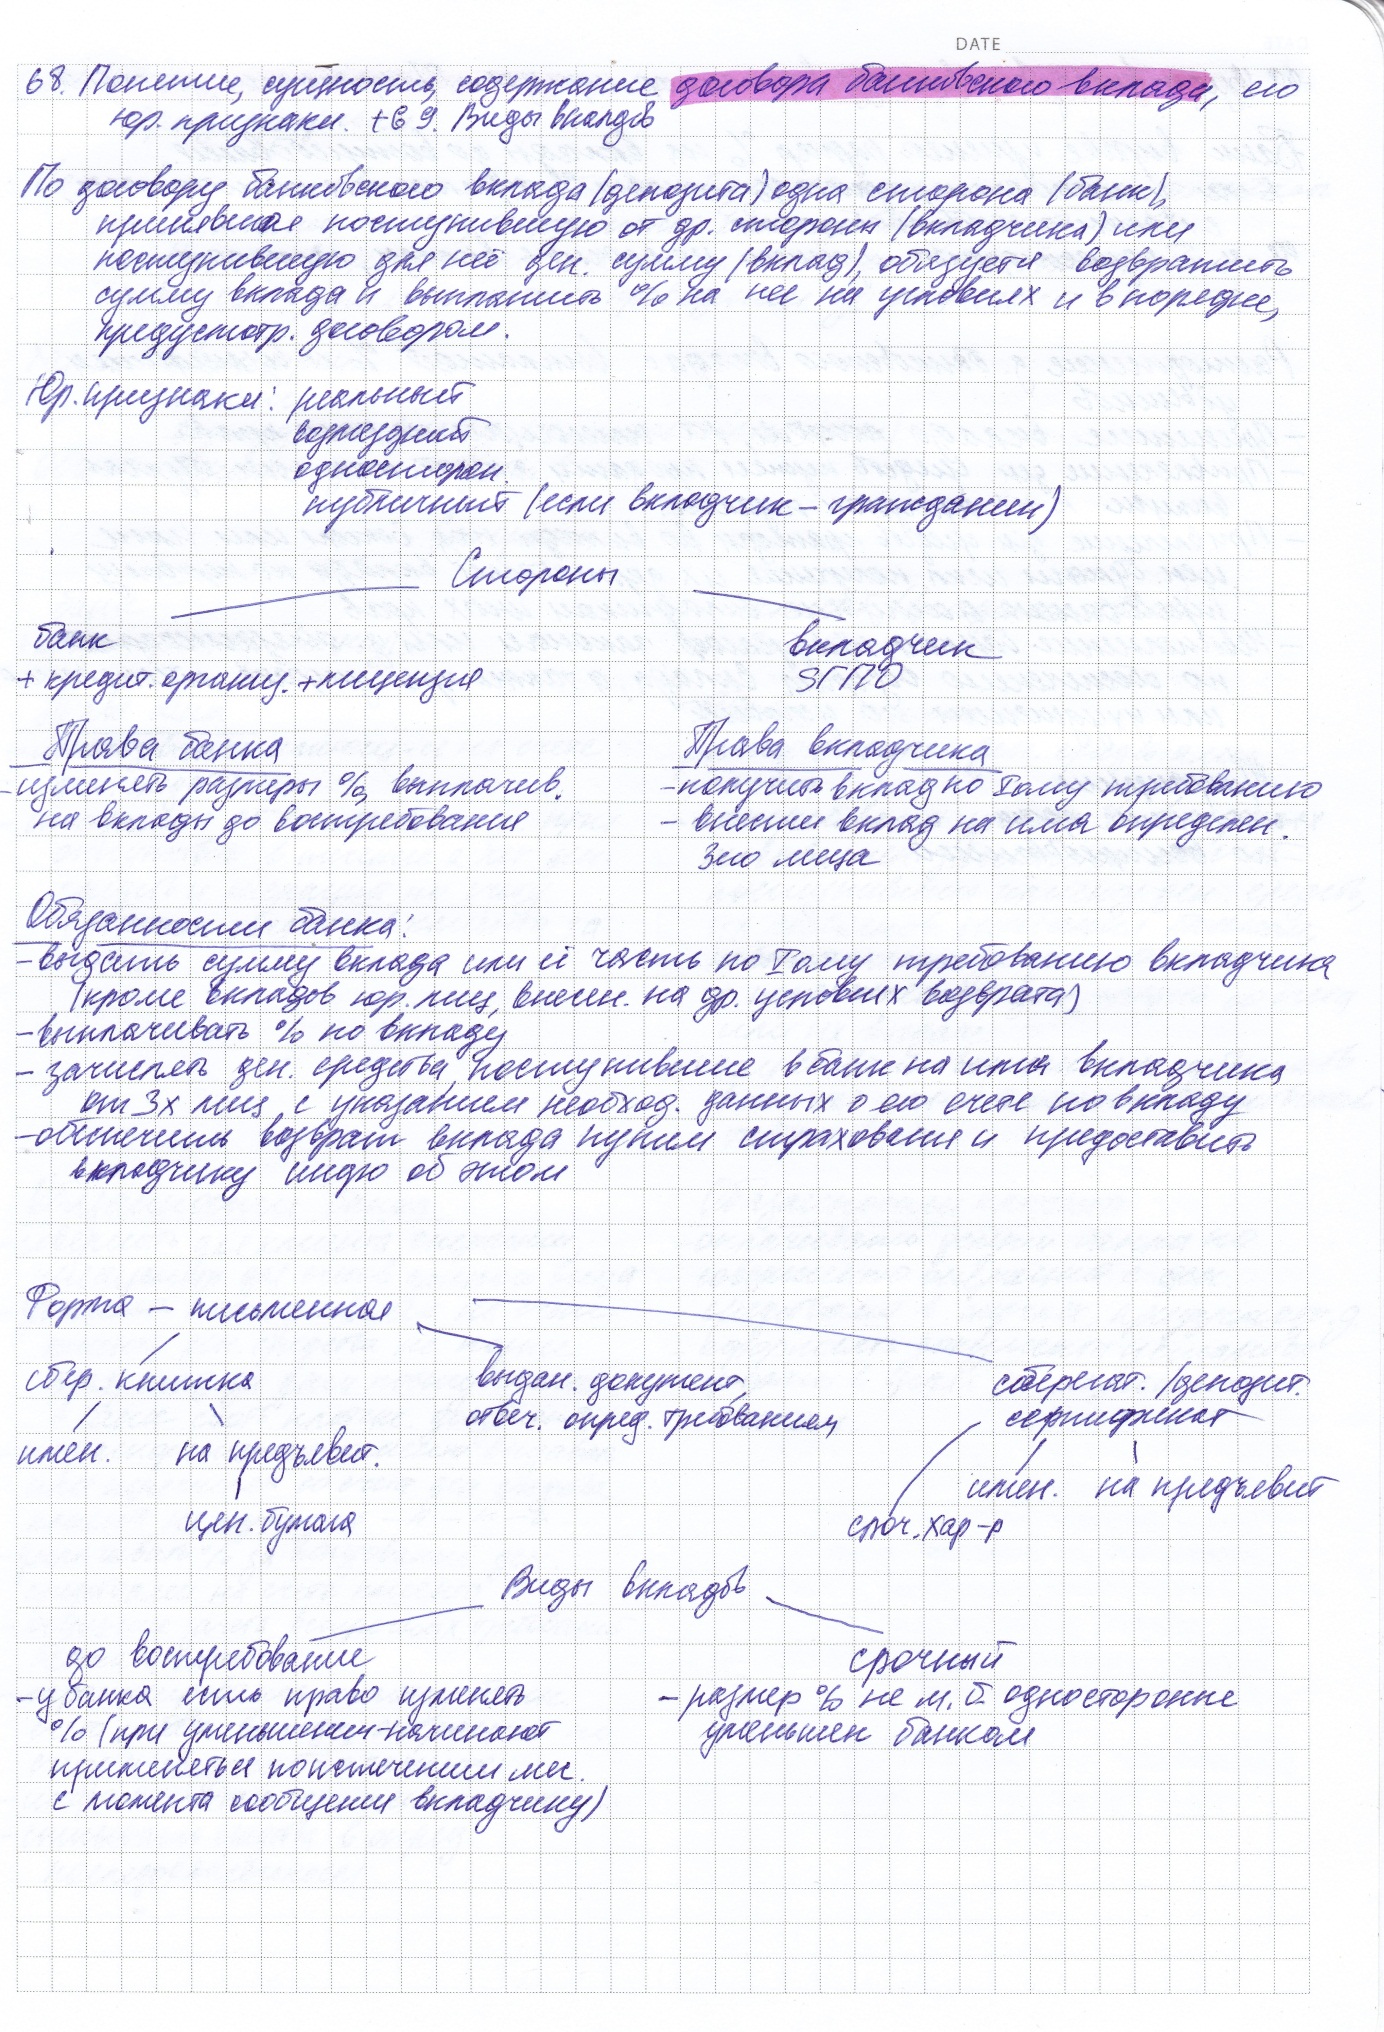 DATE
68. Понятие, сущность, содержание договора банковского вклада, его
юр. признаки. +69. Виды вкладов
По договору банковского вклада (депозита) одна сторона (банк),
принявшая поступившую от др. стороны (вкладчика) или
поступившую для неё ден. сумму (вклад), обязуется возвратить
сумму вклада и выплатить % на нее на условиях и в порядке,
предусмотр. договором.
Юр. признаки: реальный
возмездный
односторон.
публичный (если вкладчик – гражданин)
Стороны
банк вкладчик
+ кредит. организ. + лицензия SГПО
Права банка Права вкладчика
- изменять размеры %, выплачив. - получить вклад по 1ому требованию
на вклады до востребования - внести вклад на имя определен.
3го лица
Обязанности банка:
- выдать сумму вклада или её часть по 1ому требованию вкладчика
(кроме вкладов юр. лиц, внесен. на др. условиях возврата)
- выплачивать % по вкладу
- зачислять ден. средства, поступившие в банк на имя вкладчика
от 3х лиц с указанием необход. данных о его счете по вкладу
- обеспечить возврат вклада путем страхования и предоставить
вкладчику инфо об этом
Форма – письменная
сбер. книжка выдан. документ, сберегат. /депозит.
отвеч. опред. требованиям сертификат
имен. на предъявит.
имен. на предъявит
цен. бумага сроч. хар-р
Виды вкладов
до востребование срочный
- у банка есть право изменять - размер % не м. б. односторонне
% (при уменьшении-начинают уменьшен банком
применяться по истечении мес.
с момента сообщения вкладчику)